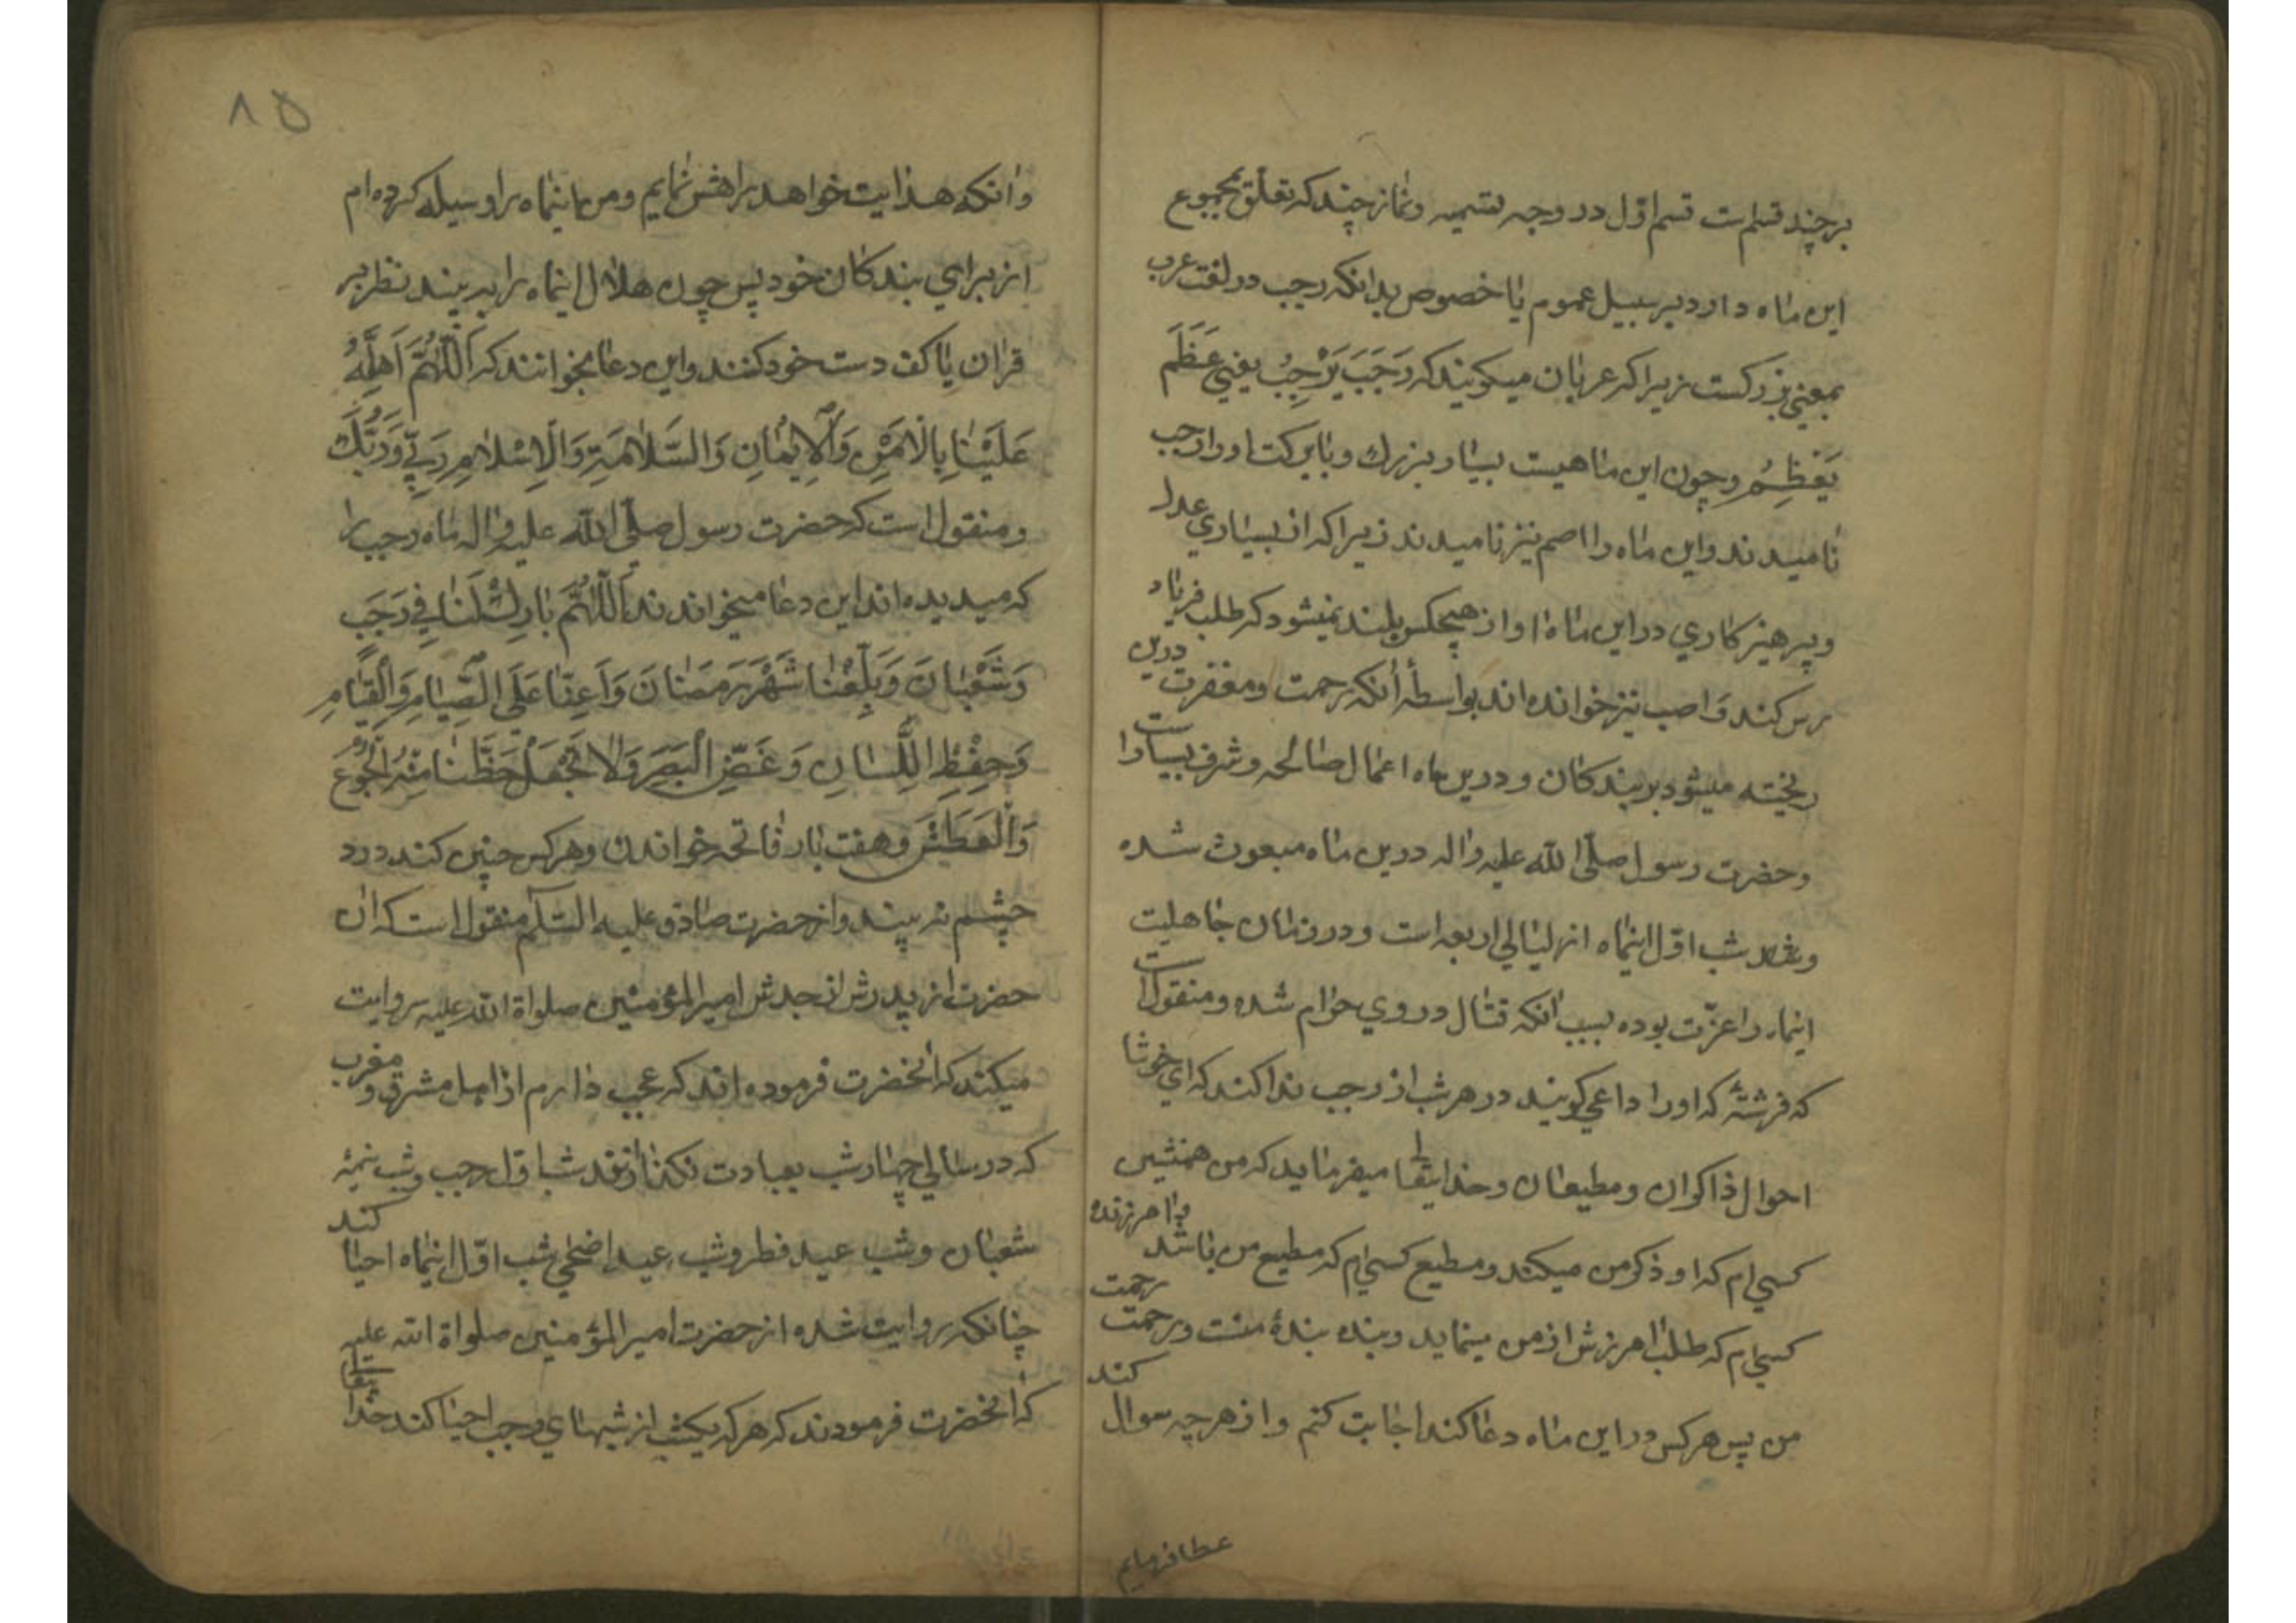 بر چند قسم است قسم اوّل در وجه تسمیه و نماز چند که تعلّق بمجموع
این ماه دارد بر سبیل عموم یا خصوص بدانکه رجب در لغت عرب
بمعنی بزرکست زیرا که عربان میکویند که رَجَبَ یَرْجِبُ یعنی عَظَمَ
یَعْظِمُ و چون این ماهیست بسیار بزرك و بابرکت او را رجب
نامیدند و این ماه را اصم نیز نامیدند زیرا که از بسیاری
و پرهیز کاری در این ماه اواز هیچکس بلند نمیشود که طلب فریاد
رس کند و اصب نیز خوانده اند بواسطهٔ آنکه رحمت و مغفرت درین
ریخته میشود بر بندکان و درین ماه اعمال صالحه و شرف بسیار است
و حضرت رسول صلّی الله علیه و اله درین ماه مبعوث شده
شب اوّل اینماه از لیالی اربعه است و در زمان جاهلیت
اینماه را عزّت بوده بسبب آنکه قتال در وی حرام شده و منقول است
که فرشتهٔ که او را داعی کویند در هر شب از رجب ندا کند که ای خوشا
احوال ذاکران و مطیعان و خدایتعالی میفرماید که من همنشین
کسی ام که او ذکر من میکند و مطیع کسی ام که مطیع من باشد و امرزندهٔ
کسی ام که طلب امرزش از من مینماید و بنده بندهٔ منست و رحمت رحمت
من پس هر کس در این ماه دعا کند اجابت کنم و از هر چه سوال کند
عطا فرمایم
۸۵
و آنکه هدایت خواهد براهش نمایم و من اینماه را وسیله کرده ام
از برای بندکان خود پس چون هلال اینماه را به بینند نظر بر
قران یا کف دست خود کنند و این دعا بخوانند که اَللّٰهُمَّ اَهِلَّهُ
عَلَیْنٰا بِالْاَمْنِ وَالْاِیْمٰانِ وَالسَّلاٰمَةِ وَالْاِسْلاٰمِ رَبّی وَرَبُّكَ
و منقول است که حضرت رسول صلّی الله علیه و اله ماه رجب را
که میدیده اند این دعا میخواندند اَللّٰهُمَّ بٰارِكْ لَنٰا فی رَجَبَ
وَشَعْبٰانَ وَبَلِّغْنٰا شَهْرَ رَمَضٰانَ وَاَعِنّٰا عَلَی الصِّیٰامِ وَالْقِیٰامِ
وَحِفْظِ اللِّسٰانِ وَغَضِّ الْبَصَرِ وَلاٰ تَجْعَلْ حَظَّنٰا مِنْهُ الْجُوْعَ
وَالْعَطَشَ و هفت بار فاتحه خواندن و هر کس چنین کند درد
چشم نه بیند و از حضرت صادق علیه السّلام منقول است که ان
حضرت از پدرش از جدش امیر المؤمنین صلواة الله علیه روایت
میکند که آنحضرت فرموده اند که عجب دارم از اهل مشرق و مغرب
که در سالی چهار شب بعبادت شب اوّل رجب و شب نیمهٔ
شعبان و شب عید فطر و شب عید اضحی شب اوّل اینماه احیا کند
چنانکه روایت شده از حضرت امیر المؤمنین صلواة الله علیه
که آنحضرت فرمودند که هر که یکشب از شبهای رجب احیا کند خدایتعالی